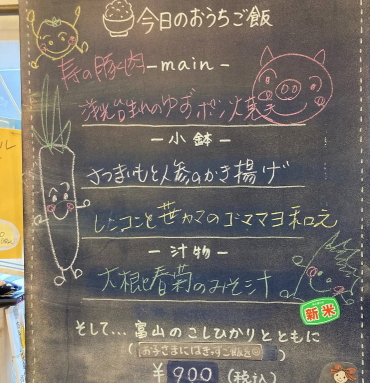 今日のおうちご飯
寿の豚肉 -main-
のゆずポン焼き
-小鉢-
さつまいもと人参のかき揚げ
レンコンと笹カマのゴママヨ和え
-汁物-
大根と春菊のみそ汁
新米
そして…富山のこしひかりとともに
￥900(税込)